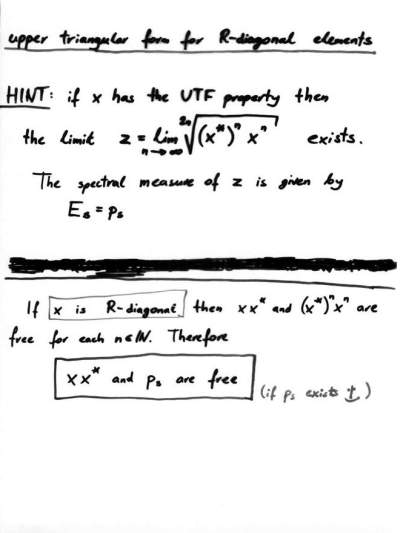 upper triangular form for R-diagonal elements
HINT: if x has the UTF property then
the limit z = lim_{n→∞} \sqrt[2n]{(x*)^n x^n} exists.
The spectral measure of z is given by
E_s = p_s
If x is R-diagonal then xx* and (x*)^n x^n are
free for each n∈ℕ. Therefore
xx* and p_s are free
(if p_s exists